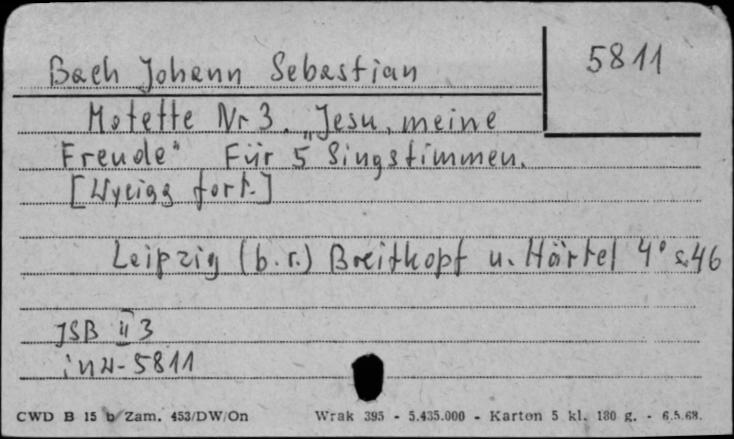 Bach Johann Sebastian
5811
Motette Nr 3. „Jesu, meine
Freude" Für 5 Singstimmen.
[Wyciąg fort.]
Leipzig (b.r.) Breitkopf u. Härtel 4° s.46
JSB II 3
inw-5811
CWD B 15 b Zam. 453/DW/On Wrak 395 - 5.435.000 - Karton 5 kl. 180 g. - 6.5.68.